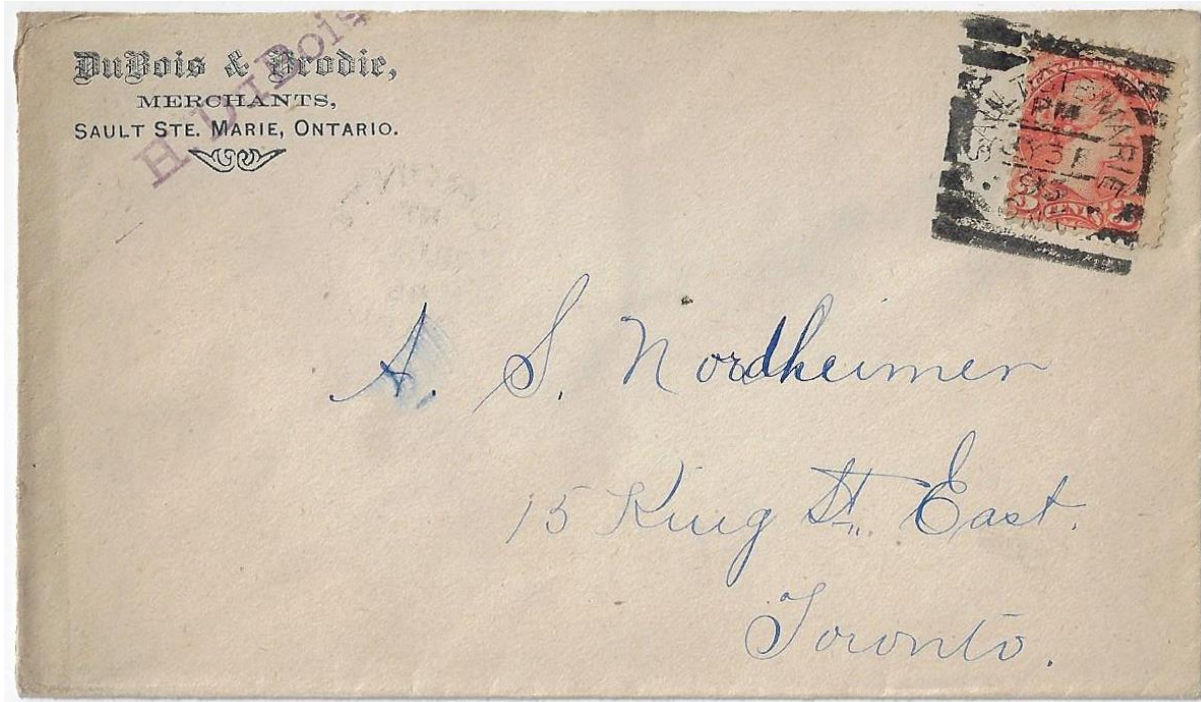 DuBois & Brodie,
MERCHANTS,
SAULT STE. MARIE, ONTARIO.
H. DuBois
SAULT STE MARIE
PM
95
ONT
CANADA POSTAGE
3 CENTS 3
A. S. Nordheimer
15 King St. East.
Toronto.